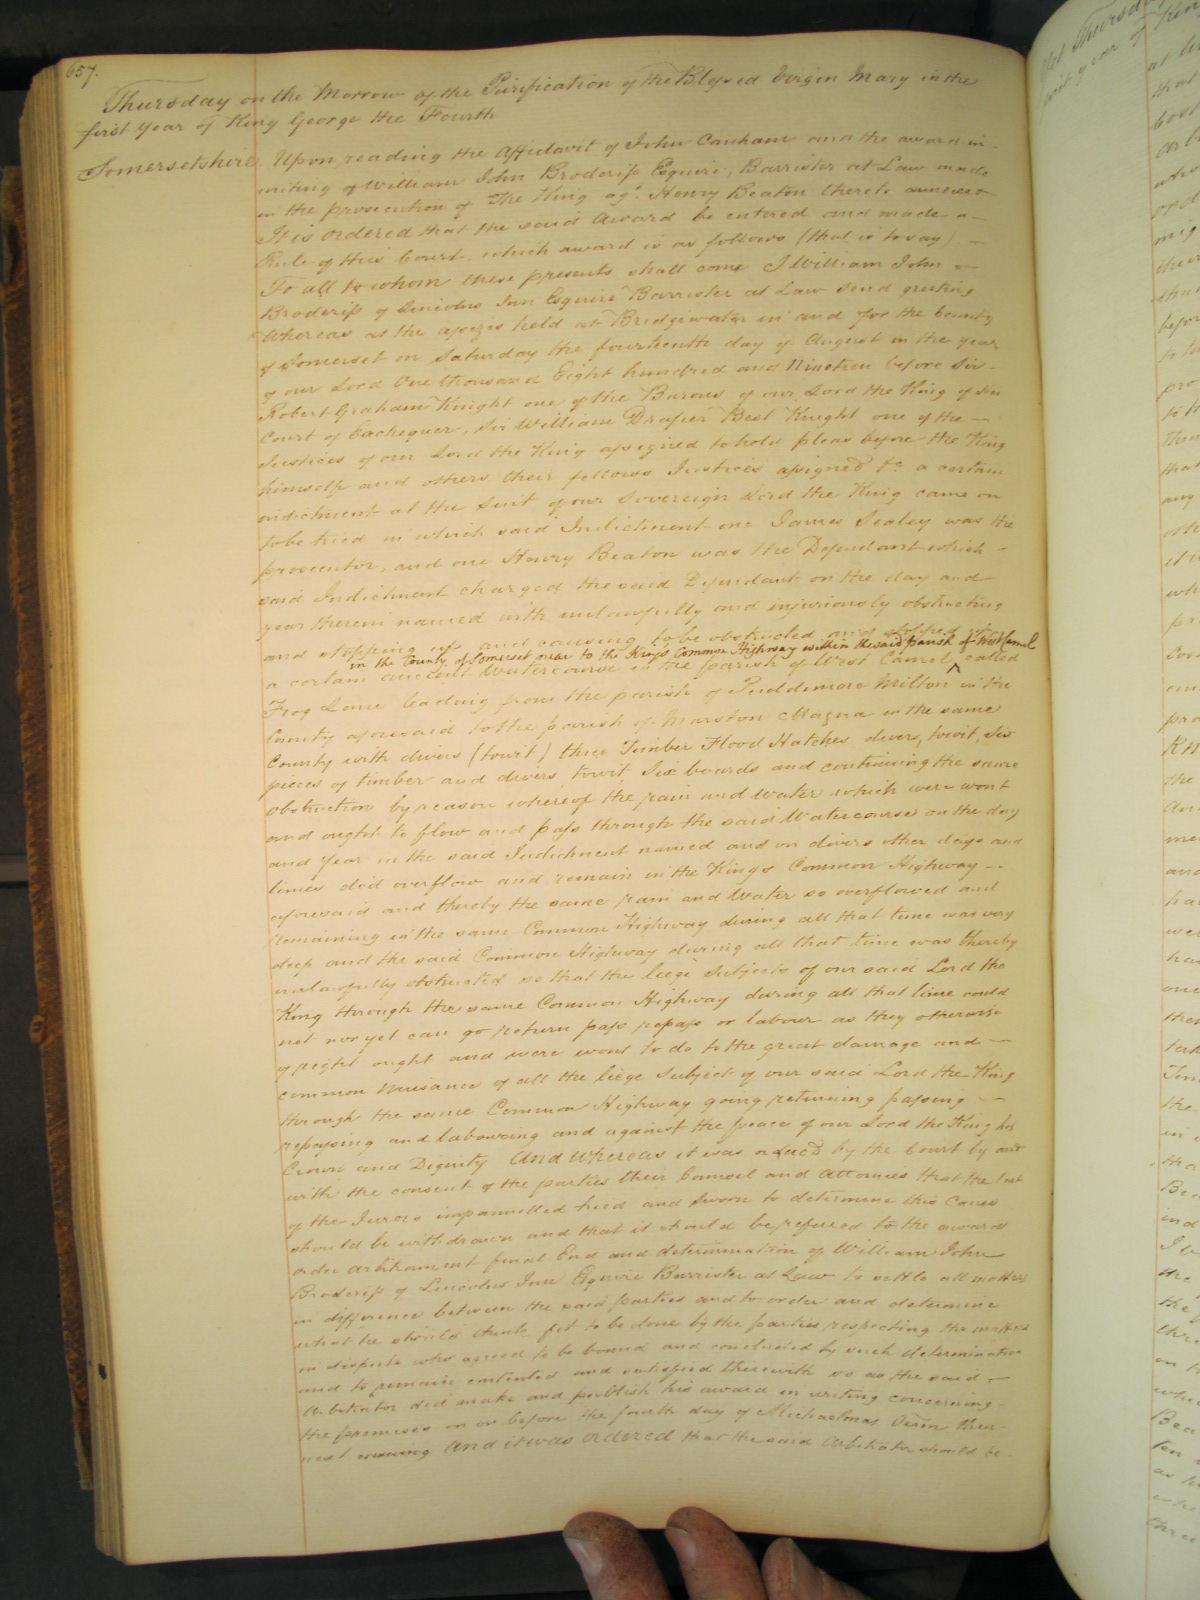 657.
Thursday on the Morrow of the Purification of the Blessed Virgin Mary in the
first Year of King George the Fourth
Somersetshire. Upon reading the Affidavit of John Canham and the award in
writing of William John Broderip Esquire, Barrister at Law made
in the prosecution of The King agt. Henry Beaton thereto annexed
It is ordered that the said Award be entered and made a
Rule of this Court which award is as follows (that is to say)
To all to whom these presents shall come I William John
Broderip of Lincolns Inn Esquire Barrister at Law send greeting
Whereas at the assizes held at Bridgewater in and for the County
of Somerset on Saturday the fourteenth day of August in the year
of our Lord One thousand Eight hundred and Nineteen before Sir
Robert Graham Knight one of the Barons of our Lord the King of his
Court of Exchequer, Sir William Draper Best Knight one of the
Justices of our Lord the King assigned to hold pleas before the King
himself and others their fellows Justices assigned &c a certain
indictment at the Suit of our Sovereign Lord the King came on
to be tried in which said Indictment one James Sealey was the
prosecutor, and one Henry Beaton was the Defendant which
said Indictment charged the said Defendant on the day and
year therein named with unlawfully and injuriously obstructing
and stopping up and causing to be obstructed and stopped up
in the County of Somerset near to the Kings Common Highway within the said parish of West Camel
a certain ancient Watercourse in the parish of West Camel ^ called
Frog Lane leading from the parish of Puddimore Milton in the
County aforesaid to the parish of Marston Magna in the same
County with divers (towit) three Timber Flood Hatches divers, towit, six
pieces of timber and divers, towit, six boards and continuing the same
obstruction by reason whereof the rain and water which were wont
and ought to flow and pass through the said Watercourse on the day
and Year in the said Indictment named and on divers other days and
times did overflow and remain in the Kings Common Highway
aforesaid and thereby the same rain and Water so overflowed and
remaining in the same Common Highway during all that time was very
deep and the said Common Highway during all that time was thereby
unlawfully obstructed so that the liege Subjects of our said Lord the
King through the same Common Highway during all that time could
not nor yet can go return pass repass or labour as they otherwise
of right ought and were wont to do to the great damage and
common Nuisance of all the liege Subject of our said Lord the King
through the same Common Highway going returning passing
repassing and labouring and against the peace of our Lord the King his
Crown and Dignity And Whereas it was ordered by the Court by and
with the consent of the parties their Counsel and Attornies that the last
of the Jurors impannelled tried and Sworn to determine this Cause
should be withdrawn and that it should be referred to the award
order arbitrament final End and determination of William John
Broderip of Lincolns Inn Esquire Barrister at Law to settle all matters
in difference between the said parties and to order and determine
what he should think fit to be done by the parties respecting the matters
in dispute who agreed to be bound and concluded by such determination
and to remain contented and satisfied therewith so as the said
Arbitrator did make and publish his award in writing concerning
the premises on or before the fourth day of Michaelmas Term then
next And it was ordered that the said Arbitrator should be